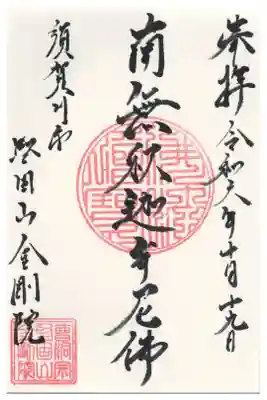 奉拝 令和六年十月十九日
南無釈迦牟尼佛
須賀川市
堅固山金剛院